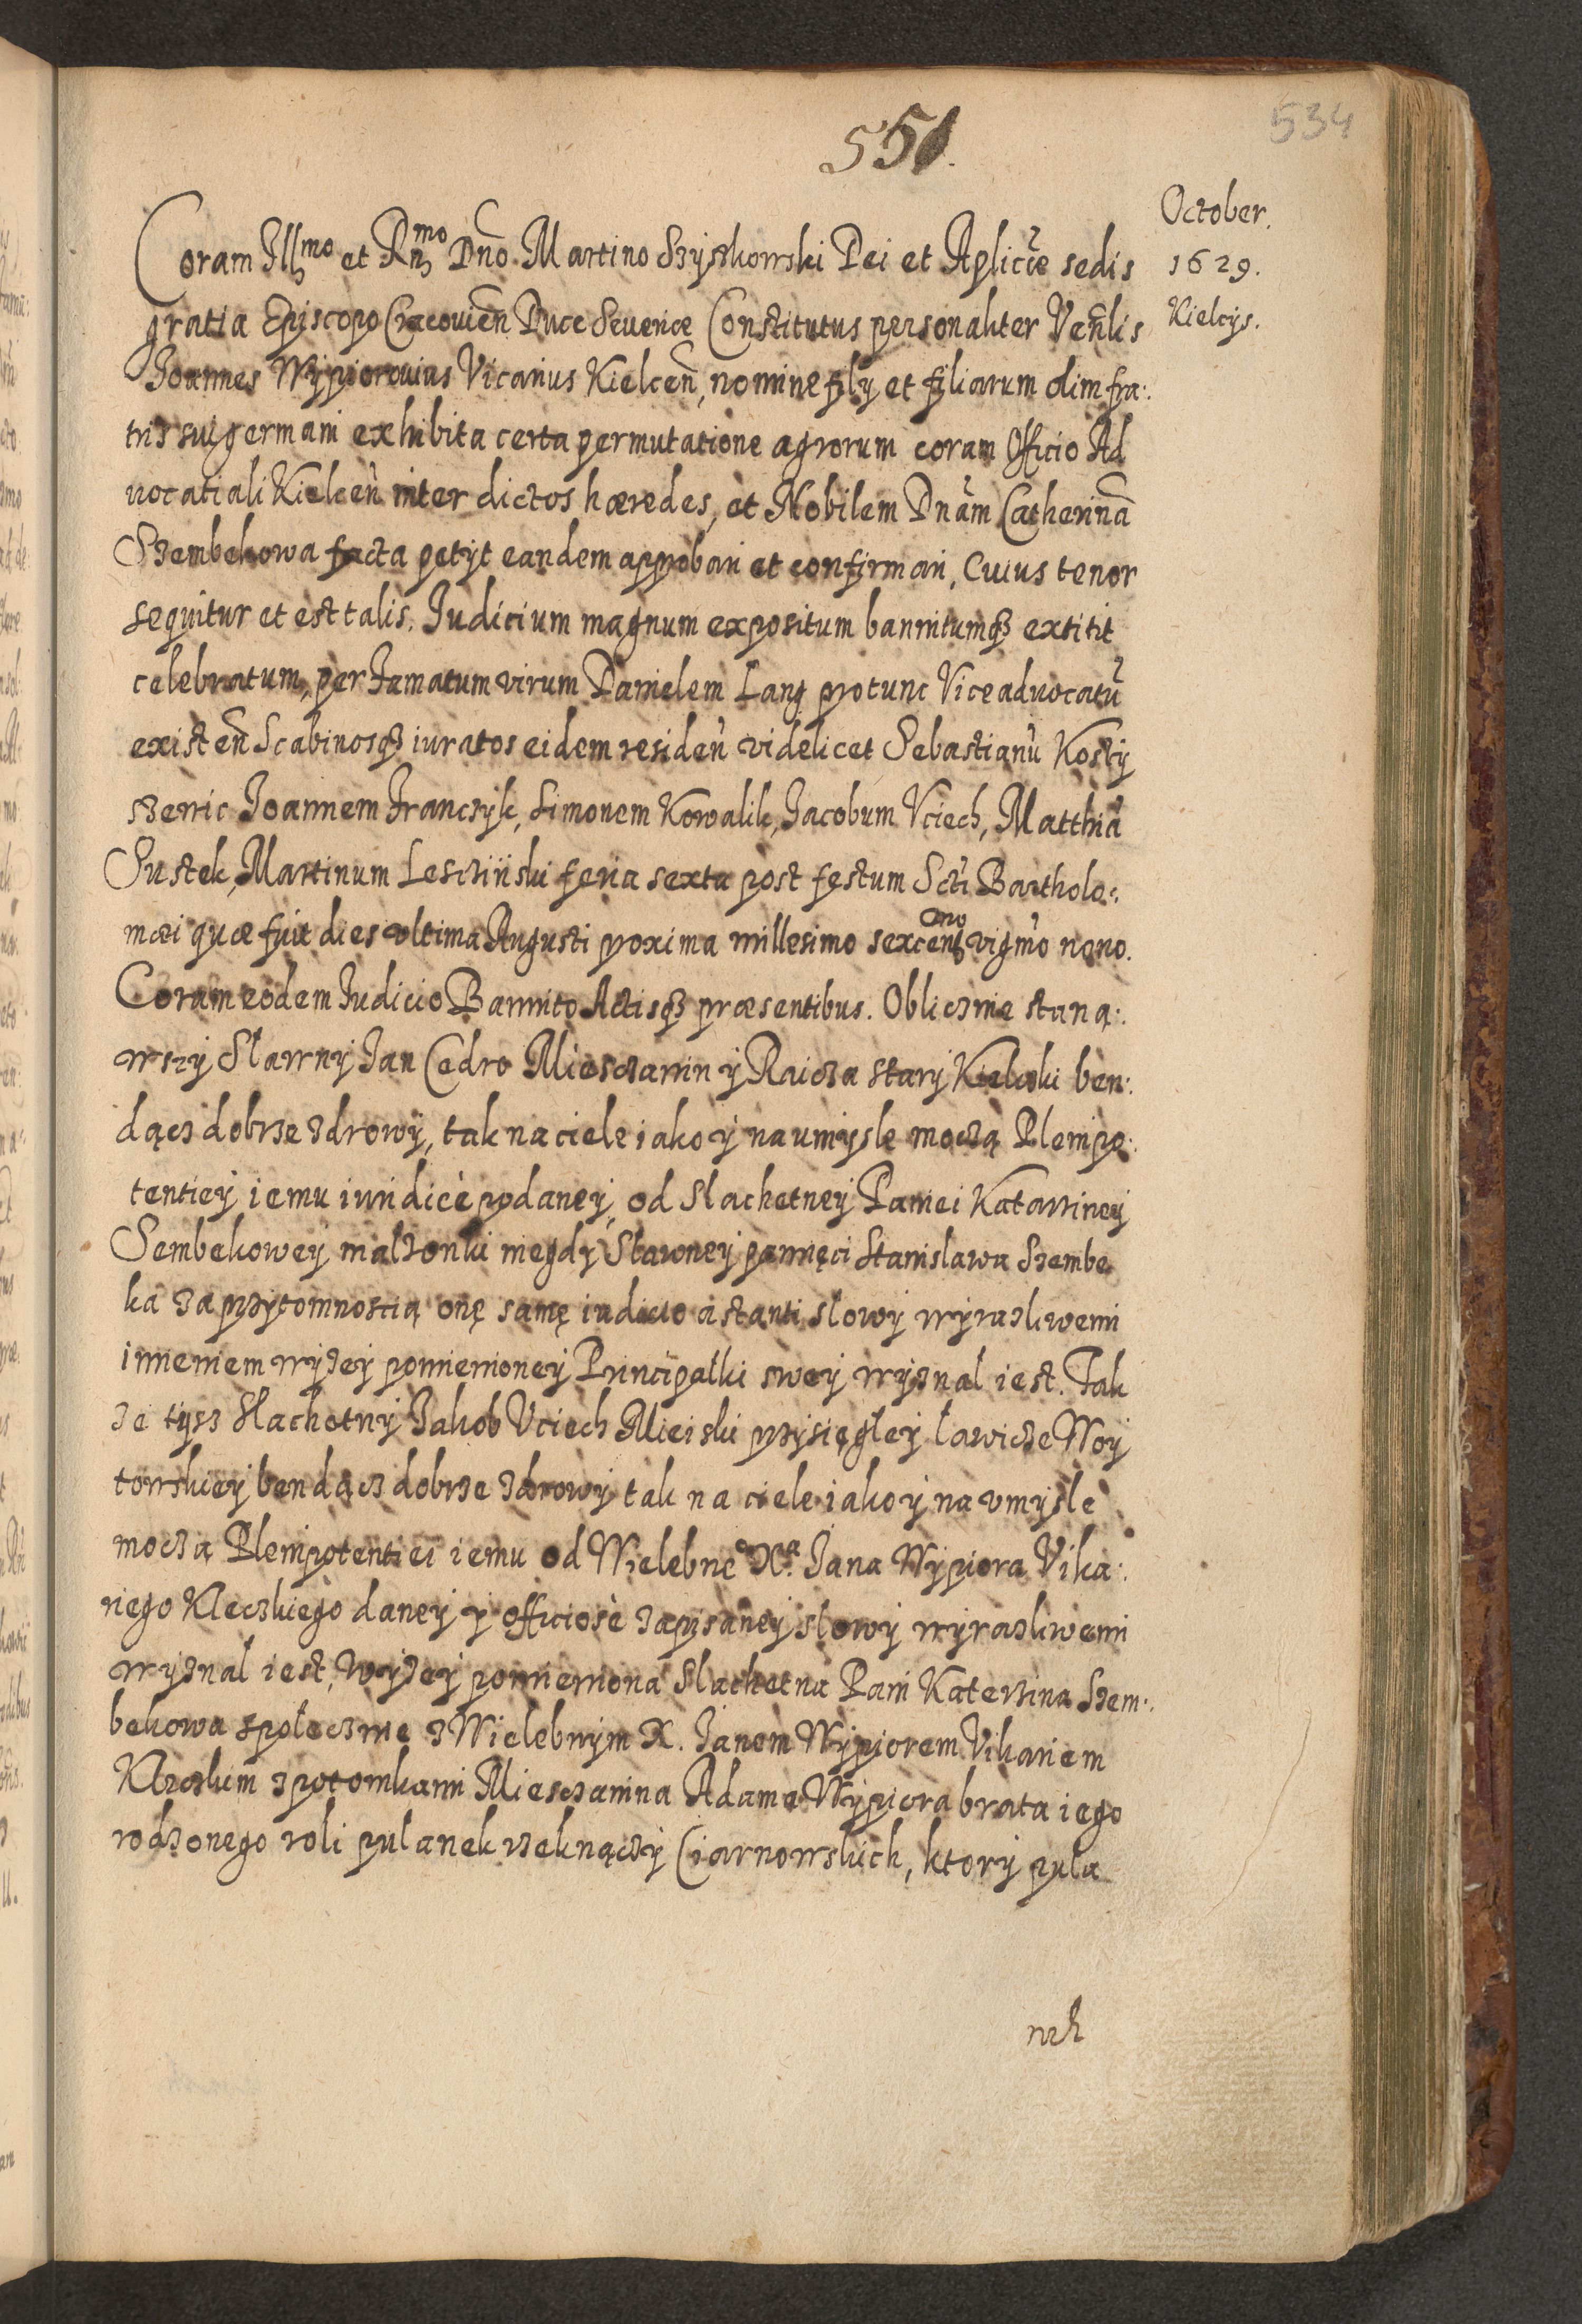 551.
534
October.
1629.
Kielcys.
Coram Illmo et Rndmo Dno. Martino Szyszkowski Dei et Aplicæ sedis
gratia Episcopo Cracouien Duce Seueriæ Constitutus personaliter Venlis
Joannes Wypiorouius Vicarius Kielcen, nomine filij et filiarum olim fra:
tris sui germani exhibita certa permutatione agrorum coram Officio Ad
uocatiali Kielcen inter dictos hæredes, et Nobilem Dnam Catherina
Szembekowa facta petijt eandem approbari et confirmari, Cuius tenor
sequitur et est talis. Judicium magnum expositum bannitumq3 extitit
celebratum, per Famatum virum Danielem Lang protunc Viceaduocatu
existen Scabinosq3 iuratos eidem residen videlicet Sebastianu Kosty
szenic Joannem Franczyk, Simonem Kowalik, Jacobum Vciech, Matthia
Sustek, Martinum Lesczinski feria sexta post festum Scti Bartholo:
mæi quæ fuit dies vltima Augusti proxima millesimo sexceno vigmo nono.
Coram eodem Judicio Bannito Actisq3 præsentibus. Oblicznie staną:
wszy Sławny Jan Cedro Miesczanin y Raicza stary Kielcski ben:
dącz dobrze zdrowy, tak na ciele iako y na umysle moczą Plenipo:
tentiey iemu iuridice podaney, od Slachetney Paniei Katarziney
Sembekowey malzonki niegdy Slawney pamięci Stanislawa Szembe
ka za przytomnoscią onę samę iudicio astanti slowy wyrazliwemi
imieniem wyzey pomienioney Principałki swey wyznal iest. Tak
ze tysz Slachetny Jakob Vciech Mieiski przysięgłey ławicze Woy
towskiey bendącz dobrze zdrowy tak na ciele iako y na vmysle
moczą Plenipotentiei iemu od Wielebneo Xa. Jana Wypiora Vika:
riego Kleczkiego daney y officiose zapisaney slowy wyrazliwemi
wyznal iest, Wyzey pomieniona Slachetna Pani Katerzina Szem:
bekowa społecznie z Wielebnym X. Janem Wypiorem Vikariem
z potomkami Miesczanina Adama Wypiora brata iego
rodzonego roli pulanek rzeknączy Ciarnowskich, ktory pula
nek